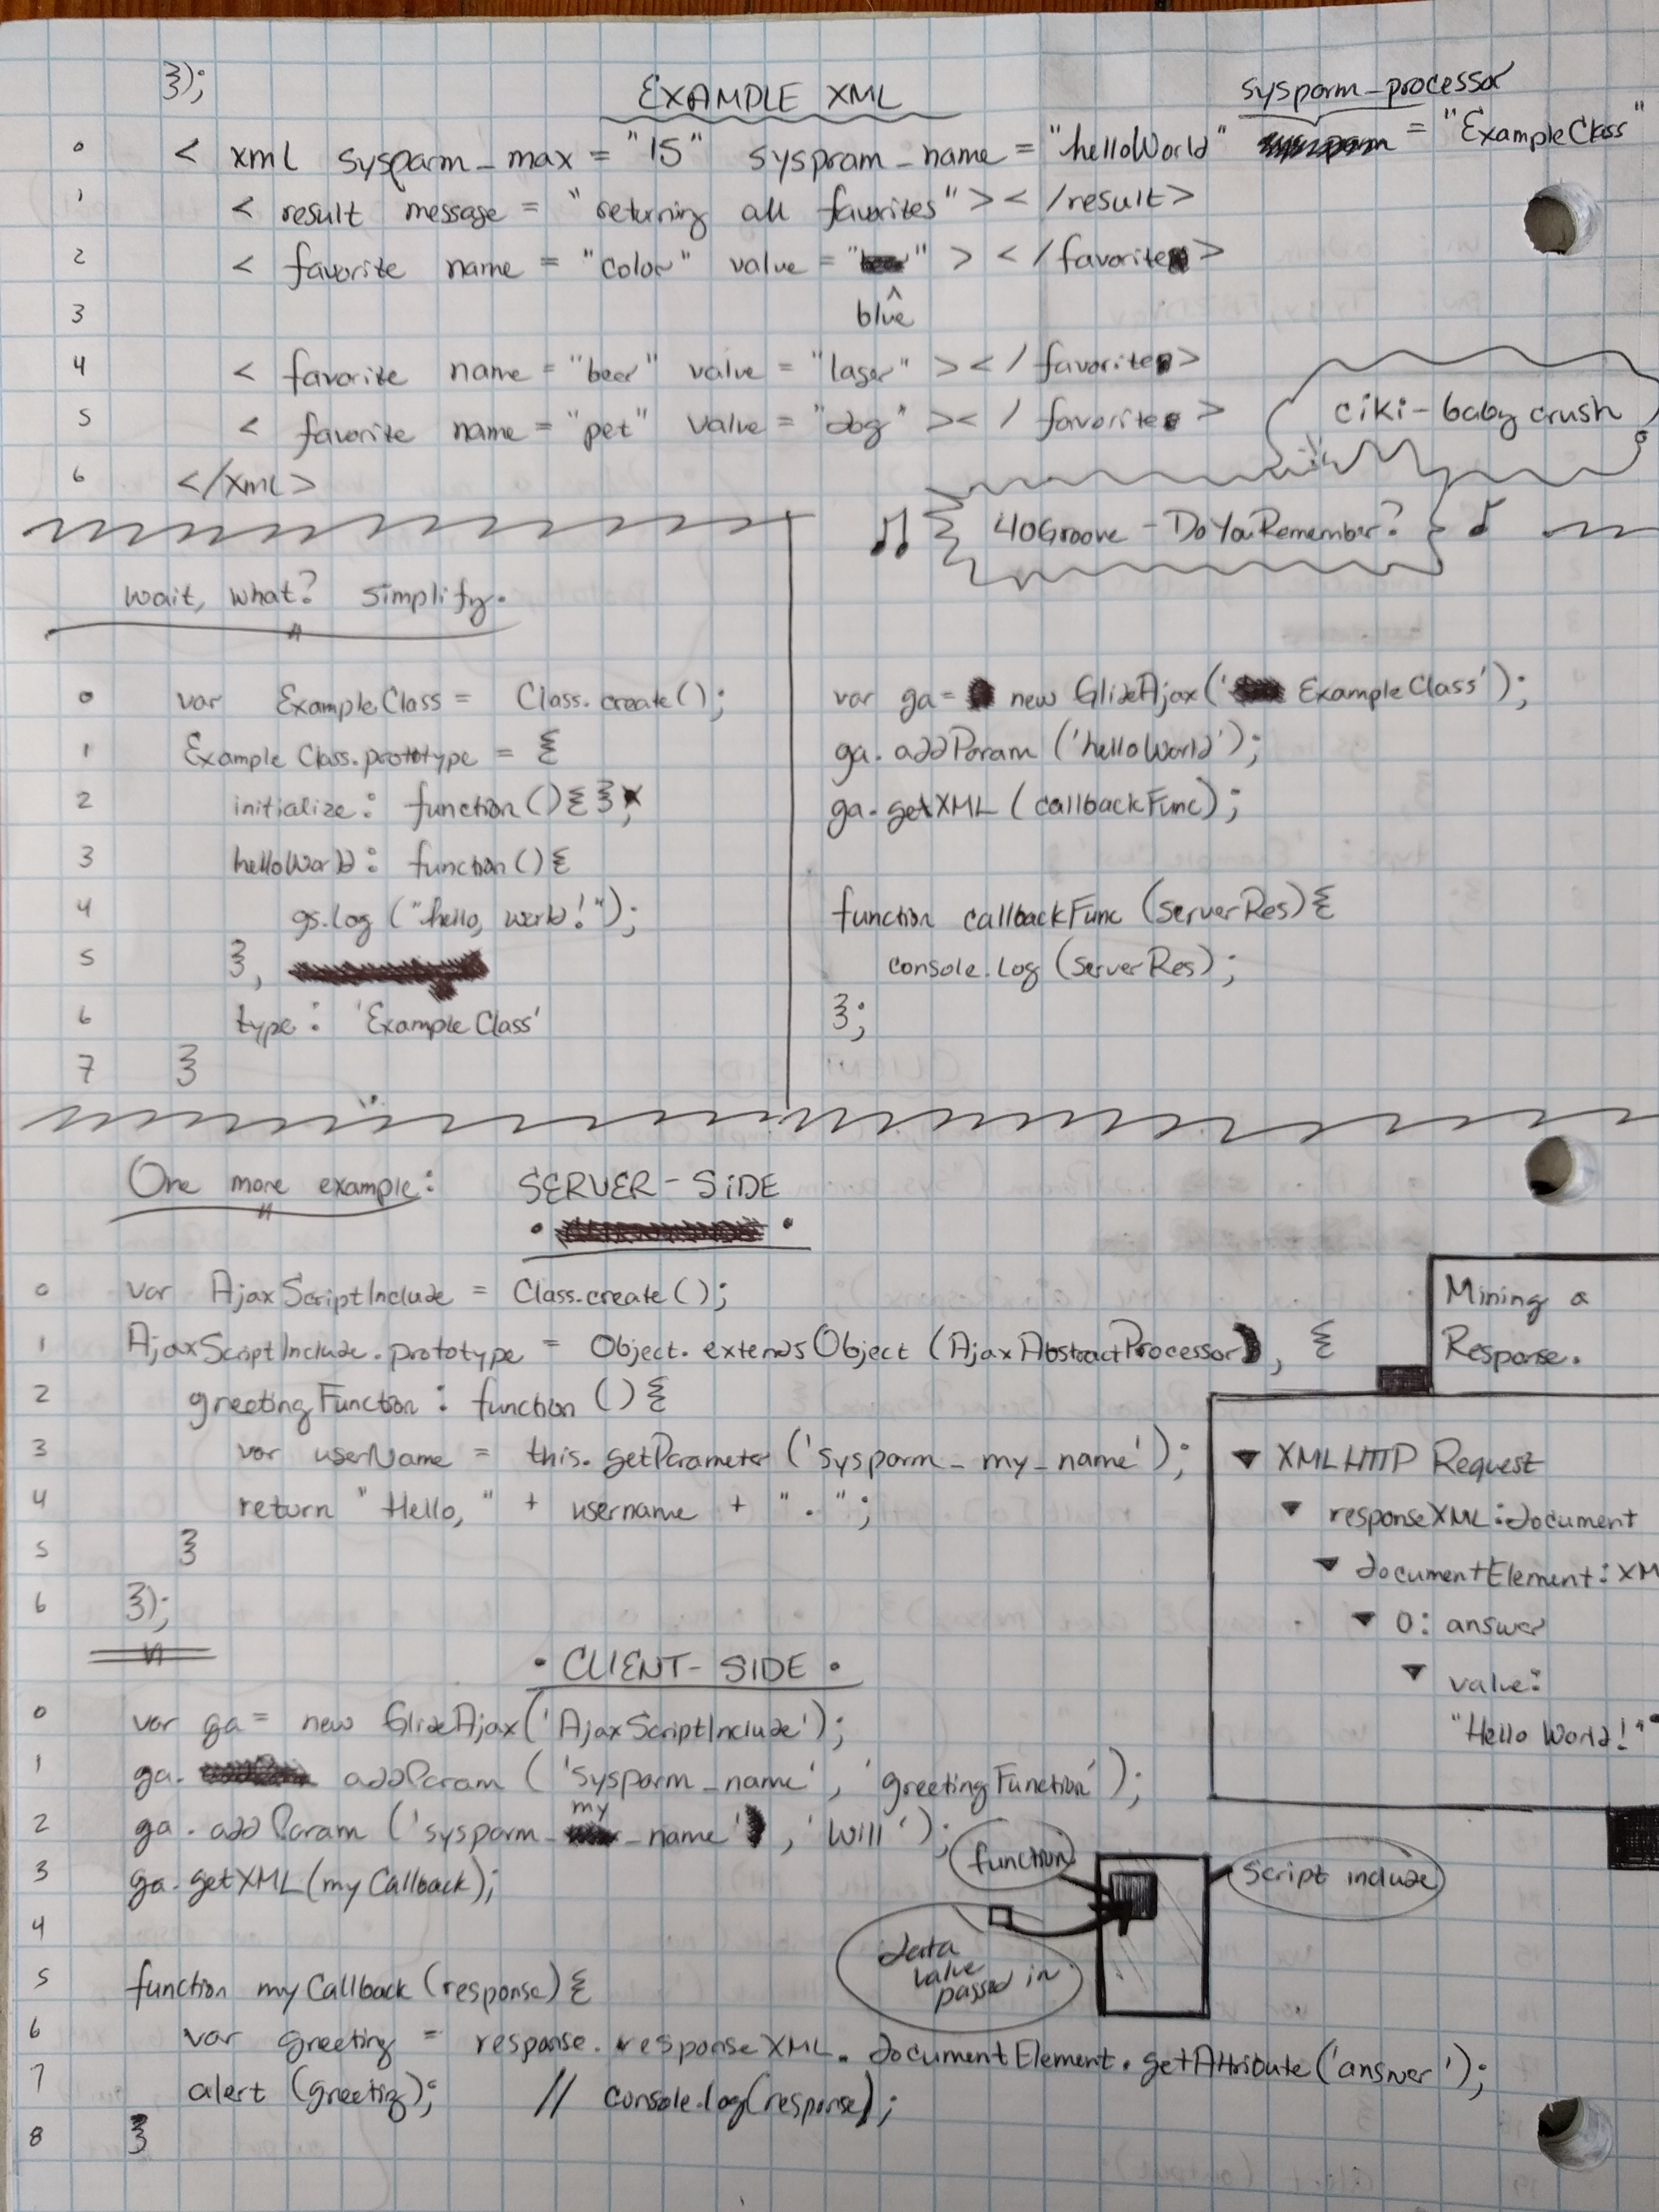 });
EXAMPLE XML
sysparm_processor
0 < xml sysparm_max = "15" syspram_name = "helloWorld" = "ExampleClass"
1 < result message = "returning all favorites" >< /result>
2 < favorite name = "color" value = " " > < /favorite >
3 ^ blue
4 < favorite name = "beer" value = "lager" >< / favorite >
5 < favorite name = "pet" value = "dog" >< / favorite >
6 </xml>
ciki-baby crush
40Groove - DoYouRemember?
wait, what? simplify.
0 var ExampleClass = Class.create();
1 ExampleClass.prototype = {
2 initialize: function(){},
3 helloWorld: function(){
4 gs.log("hello, world!");
5 },
6 type: 'ExampleClass'
7 }
var ga = new GlideAjax('ExampleClass');
ga.addParam('helloWorld');
ga.getXML(callbackFunc);
function callbackFunc(serverRes){
console.log(serverRes);
};
One more example: SERVER-SIDE
0 var AjaxScriptInclude = Class.create();
1 AjaxScriptInclude.prototype = Object.extendsObject(AjaxAbstractProcessor, {
2 greetingFunction: function(){
3 var userName = this.getParameter('sysparm_my_name');
4 return "Hello, " + username + ".";
5 }
6 });
Mining a
Response.
XMLHTTP Request
responseXML:document
documentElement: XM
0: answer
value:
"Hello World!"
• CLIENT-SIDE •
0 var ga = new GlideAjax('AjaxScriptInclude');
1 ga. addParam('sysparm_name', 'greetingFunction');
2 ga.addParam('sysparm_my_name', 'Will');
3 ga.getXML(myCallback);
4
5 function myCallback(response){
6 var greeting = response.responseXML.documentElement.getAttribute('answer');
7 alert(greeting); // console.log(response);
8 }
function
script include
data
value
passed in